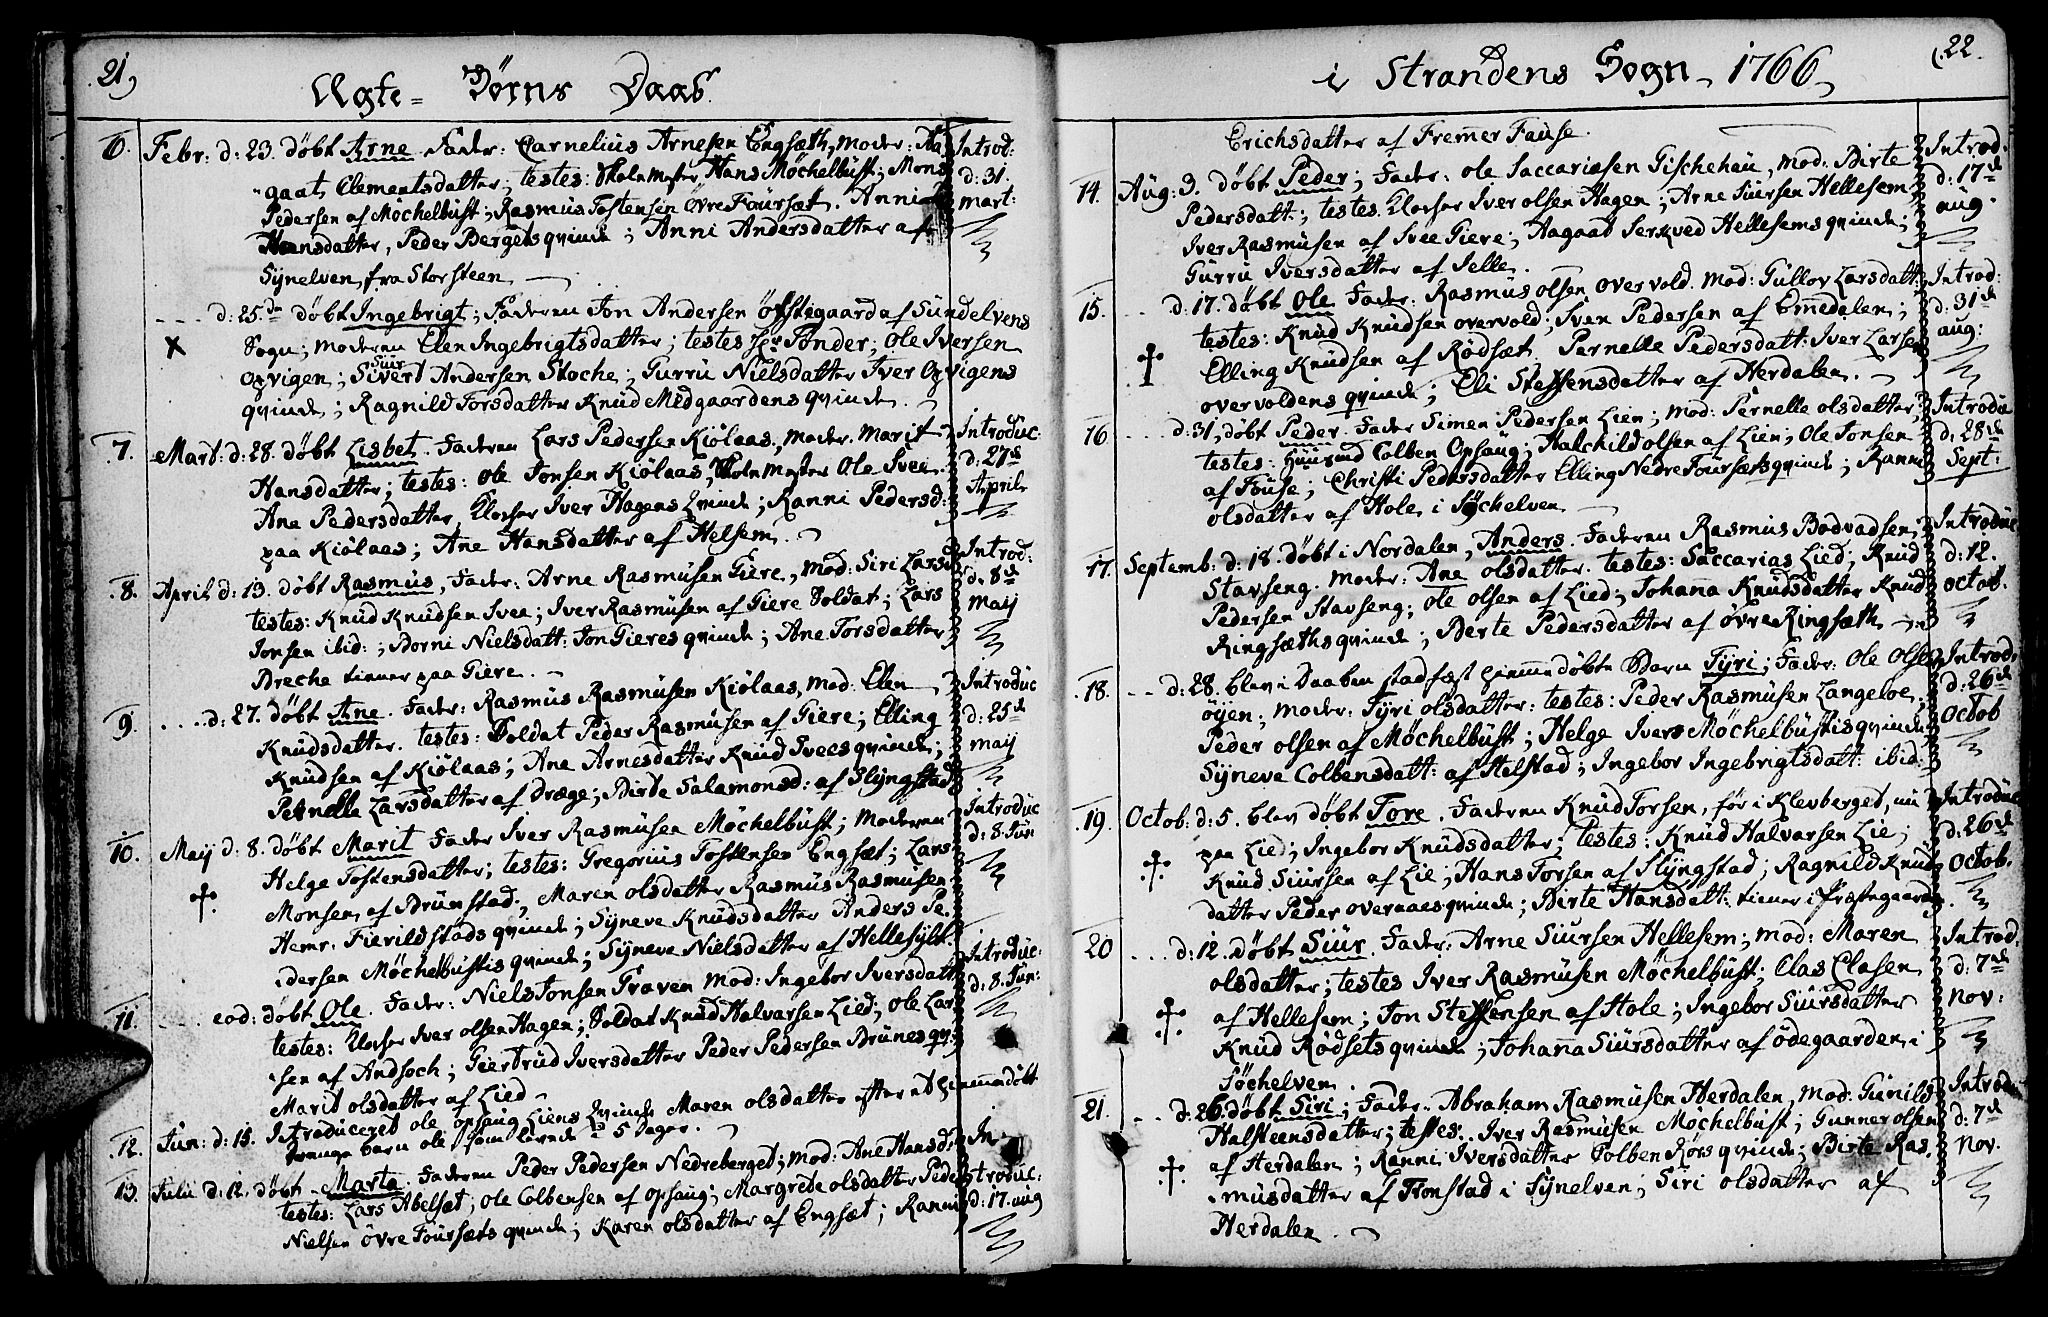 21)
Ægte- Børns Daab
6. Febr: d: 23. døbt Arne. Fader: Carnelius Arnesen Engsæth, Moder: Aa Introd:
gaat Clementsdatter; testes: Skolemester Hans Møchelbust; Mons d: 31.
Pedersen af Møchelbust; Rasmus Tostensen øvre Foursæt. Anni mart:
Hansdatter, Peder Bergets qvinde; Anni Andersdatter af
Synelven, fra Storsteen
d: 25de døbt Ingebrigt; Faderen Jon Andersen Øfstegaard af Sundelvens
X Sogn; moderen Elen Ingebrigtsdatter; testes Hr Tønder; Ole Iversen
Siur
Opvigen; Sivert Andersen Stoche; Gurru Nielsdatter Iver Opvigens
qvinde; Ragnild Torsdatter Knud Medgaardens qvinde.
7. Mart: d: 28. døbt Lisbet. Faderen Lars Pedersen Kiölaas, Moder. Marit Introduc:
Hansdatter; testes: Ole Jonsen Kiölaas, Skolemester Ole Svee. d: 27de
Ane Pedersdatter, Klocher Iver Hagens Qvinde; Ranni Pedersd: April
paa Kiölaas; Ane Hansdatter af Helsem.
8. April d: 13. døbt Rasmus, Fader: Arne Rasmusen Giere, Mod: Siri Larsd Introd:
testes: Knud Knudsen Svee; Iver Rasmusen af Giere Soldat; Lars d: 8de
Jonsen ibid:; Borni Nielsdatt: Jon Gieres qvinde; Ane Torsdatter maij
Breche tiener paa Giere.
9. d: 27. døbt Ane. Fader: Rasmus Rasmusen Kiölaas, Mod: Elen Introduc
Knudsdatter. testes: Soldat Peder Rasmusen af Giere; Elling d: 25de
Knudsen af Kiölaas; Ane Arnesdatter Knud Svees qvinde; maij
Pernelle Larsdatter af Dræge; Birte Salamonsd: af Slyngstad
10. Maij d: 8. døbt Marit Fader Iver Rasmusen Møchelbust; Moderen Introduc
Helge Tostensdatter; testes: Gregorius Tostensen Engsæt; Lars d: 8. Jun:
Monsen af Brunstad; Maren olsdatter Rasmus Rasmusen
Hemr. Fierildstads qvinde; Syneve Knudsdatter Anders Pe.
dersen Møchelbustis qvinde; Syneve Nielsdatter af Hellesylt.
11. eod: døbt Ole. Fader: Niels Jonsen Traven Mod: Ingebor Iversdatt Introduc:
testes: Klocher Iver olsen Hagen; Soldat Knud Halvarsen Lied; Ole Lar d: 8. Jun:
sen af Andsoch; Giertrud Iversdatter Peder Pedersen Brunes qv:
Marit olsdatter af Lied
12. Jun: d: 15. Introduceret ole opsaug Liens Qvinde Maren olsdatter efter et hiemmedøbt
Drenge barn ole som levede i 5 Dager.
13. Julii d: 12. døbt Marta. Faderen Peder Pedersen Nedreberget; mod: Ane Hansd: In
testes: Lars Abelsæt; ole Colbensen af opsaug; Margrete olsdatter Peder troduc:
Nielsen øvre Foursæts qvinde; Karen olsdatter af Engsæt; Ranni d: 17. aug
i Strandens Sogn 1766
(22.
Erichsdatter af Fremmer Fause.
14. Aug: 3. døbt Peder; Fader: ole Saccariasen Gischehau, Mod: Birte Introd.
Pedersdatt:; testes. Klocher Iver olsen Hagen; Arne Siursen Hellesem d: 17de
Iver Rasmusen af Svee Giere; Aagaat Serkved Hellesems qvinde; aug.
Gurru Iversdatter af Selle.
15. d: 17. døbt Ole Fader: Rasmus olsen overvold. Mod: Gullov Larsdatt: Introd:
testes: Knud Knudsen overvold; Sven Pedersen af Emmedalen; d: 31de
Elling Knudsen af Rødsæt. Pernelle Pedersdatt: Iver Larsen aug:
overvoldens qvinde; Eli Steffensdatter af Herdalen.
16 d: 31, døbt Peder. Fader Simen Pedersen Lien; Mod: Pernelle olsdatter; Introduc
testes: Colben Opsaug; Halchild olsen af Lien; Ole Jonsen d: 28de
af Fouse; Christi Pedersdatter Elling Nedre Foursæts qvinde; Ranni Sept:
olsdatter af Hole i Søchelven
17. Septemb: d: 18. døbt i Nordalen, Anders. Faderen Rasmus Bodvadsen, Introduc
Stavseng. Moder: Ane olsdatter. testes: Saccarias Lied; Knud d: 12.
Pedersen Stavseng; Ole olsen af Lied; Johanna Knudsdatter Knud octob.
Ringsæths qvinde; Berte Pedersdatter af øvre Ringsæth
18. d: 28. blev i Daaben stadfæst hiemmedøbte Barn Tyri; Fader: Ole Olsen Introd:
öyjen; Moder: Tyri olsdatter: testes: Peder Rasmusen Langeloe, d: 26de
Peder olsen af Møchelbust; Helge Ivers Møchelbustis qvinde; octob
Syneve Colbensdatt: af Helstad; Ingebor Ingebrigtsdatt: ibid:
19. Octob: d: 5. blev døbt Tore. Faderen Knud Torsen, før i Klevberget, nu Introduc
paa Lied; Ingebor Knudsdatter; testes: Knud Halvarsen Lie; d: 26de
Knud Siursen af Lie; Hans Torsen af Slyngstad; Ragnild Knuds Octob.
datter Peder overaaes qvinde; Birte Hansdatt: tiener i Præstegaarden.
20 d: 12. døbt Siur. Fader: Arne Siursen Hellesem; mod: Maren Introd.
olsdatter; testes Iver Rasmusen Møchelbust; Clas Clasen d: 7de
af Hellesem; Jon Steffensen af Hole; Ingebor Siursdatter Nov:
Knud Rødsets qvinde; Johanna Siursdatter af ødegaarden i
Søchelven.
21. d: 26. døbt Siri; Fader: Abraham Rasmusen Herdalen, Mod: Gunild Introdu
Halsteensdatter; testes: Iver Rasmusen Møchelbust; Gunner olsen d: 7de
af Herdalen; Ranni Iversdatter Colben Rørs qvinde; Birte Ras. Nov.
musdatter af Tronstad i Synelven; Siri olsdatter af
Herdalen.